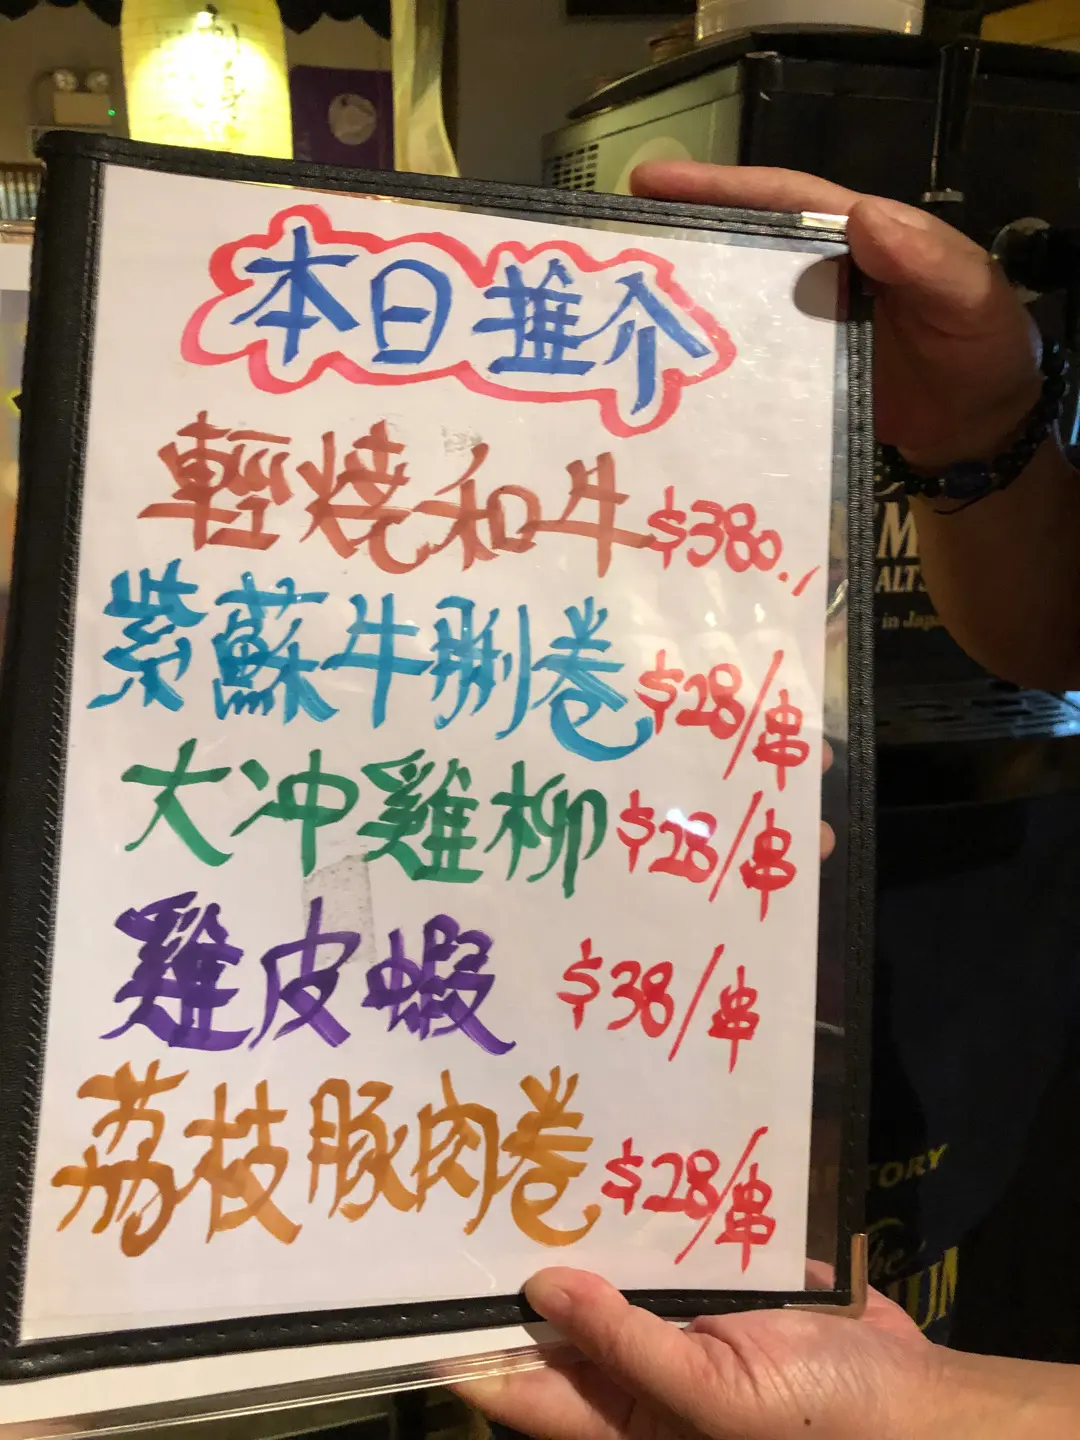 本日推介
輕燒和牛 $380.
紫蘇牛脷卷 $28/串
大冲雞柳 $28/串
雞皮蝦 $38/串
荔枝豚肉卷 $28/串
MALTS
in Japan
The